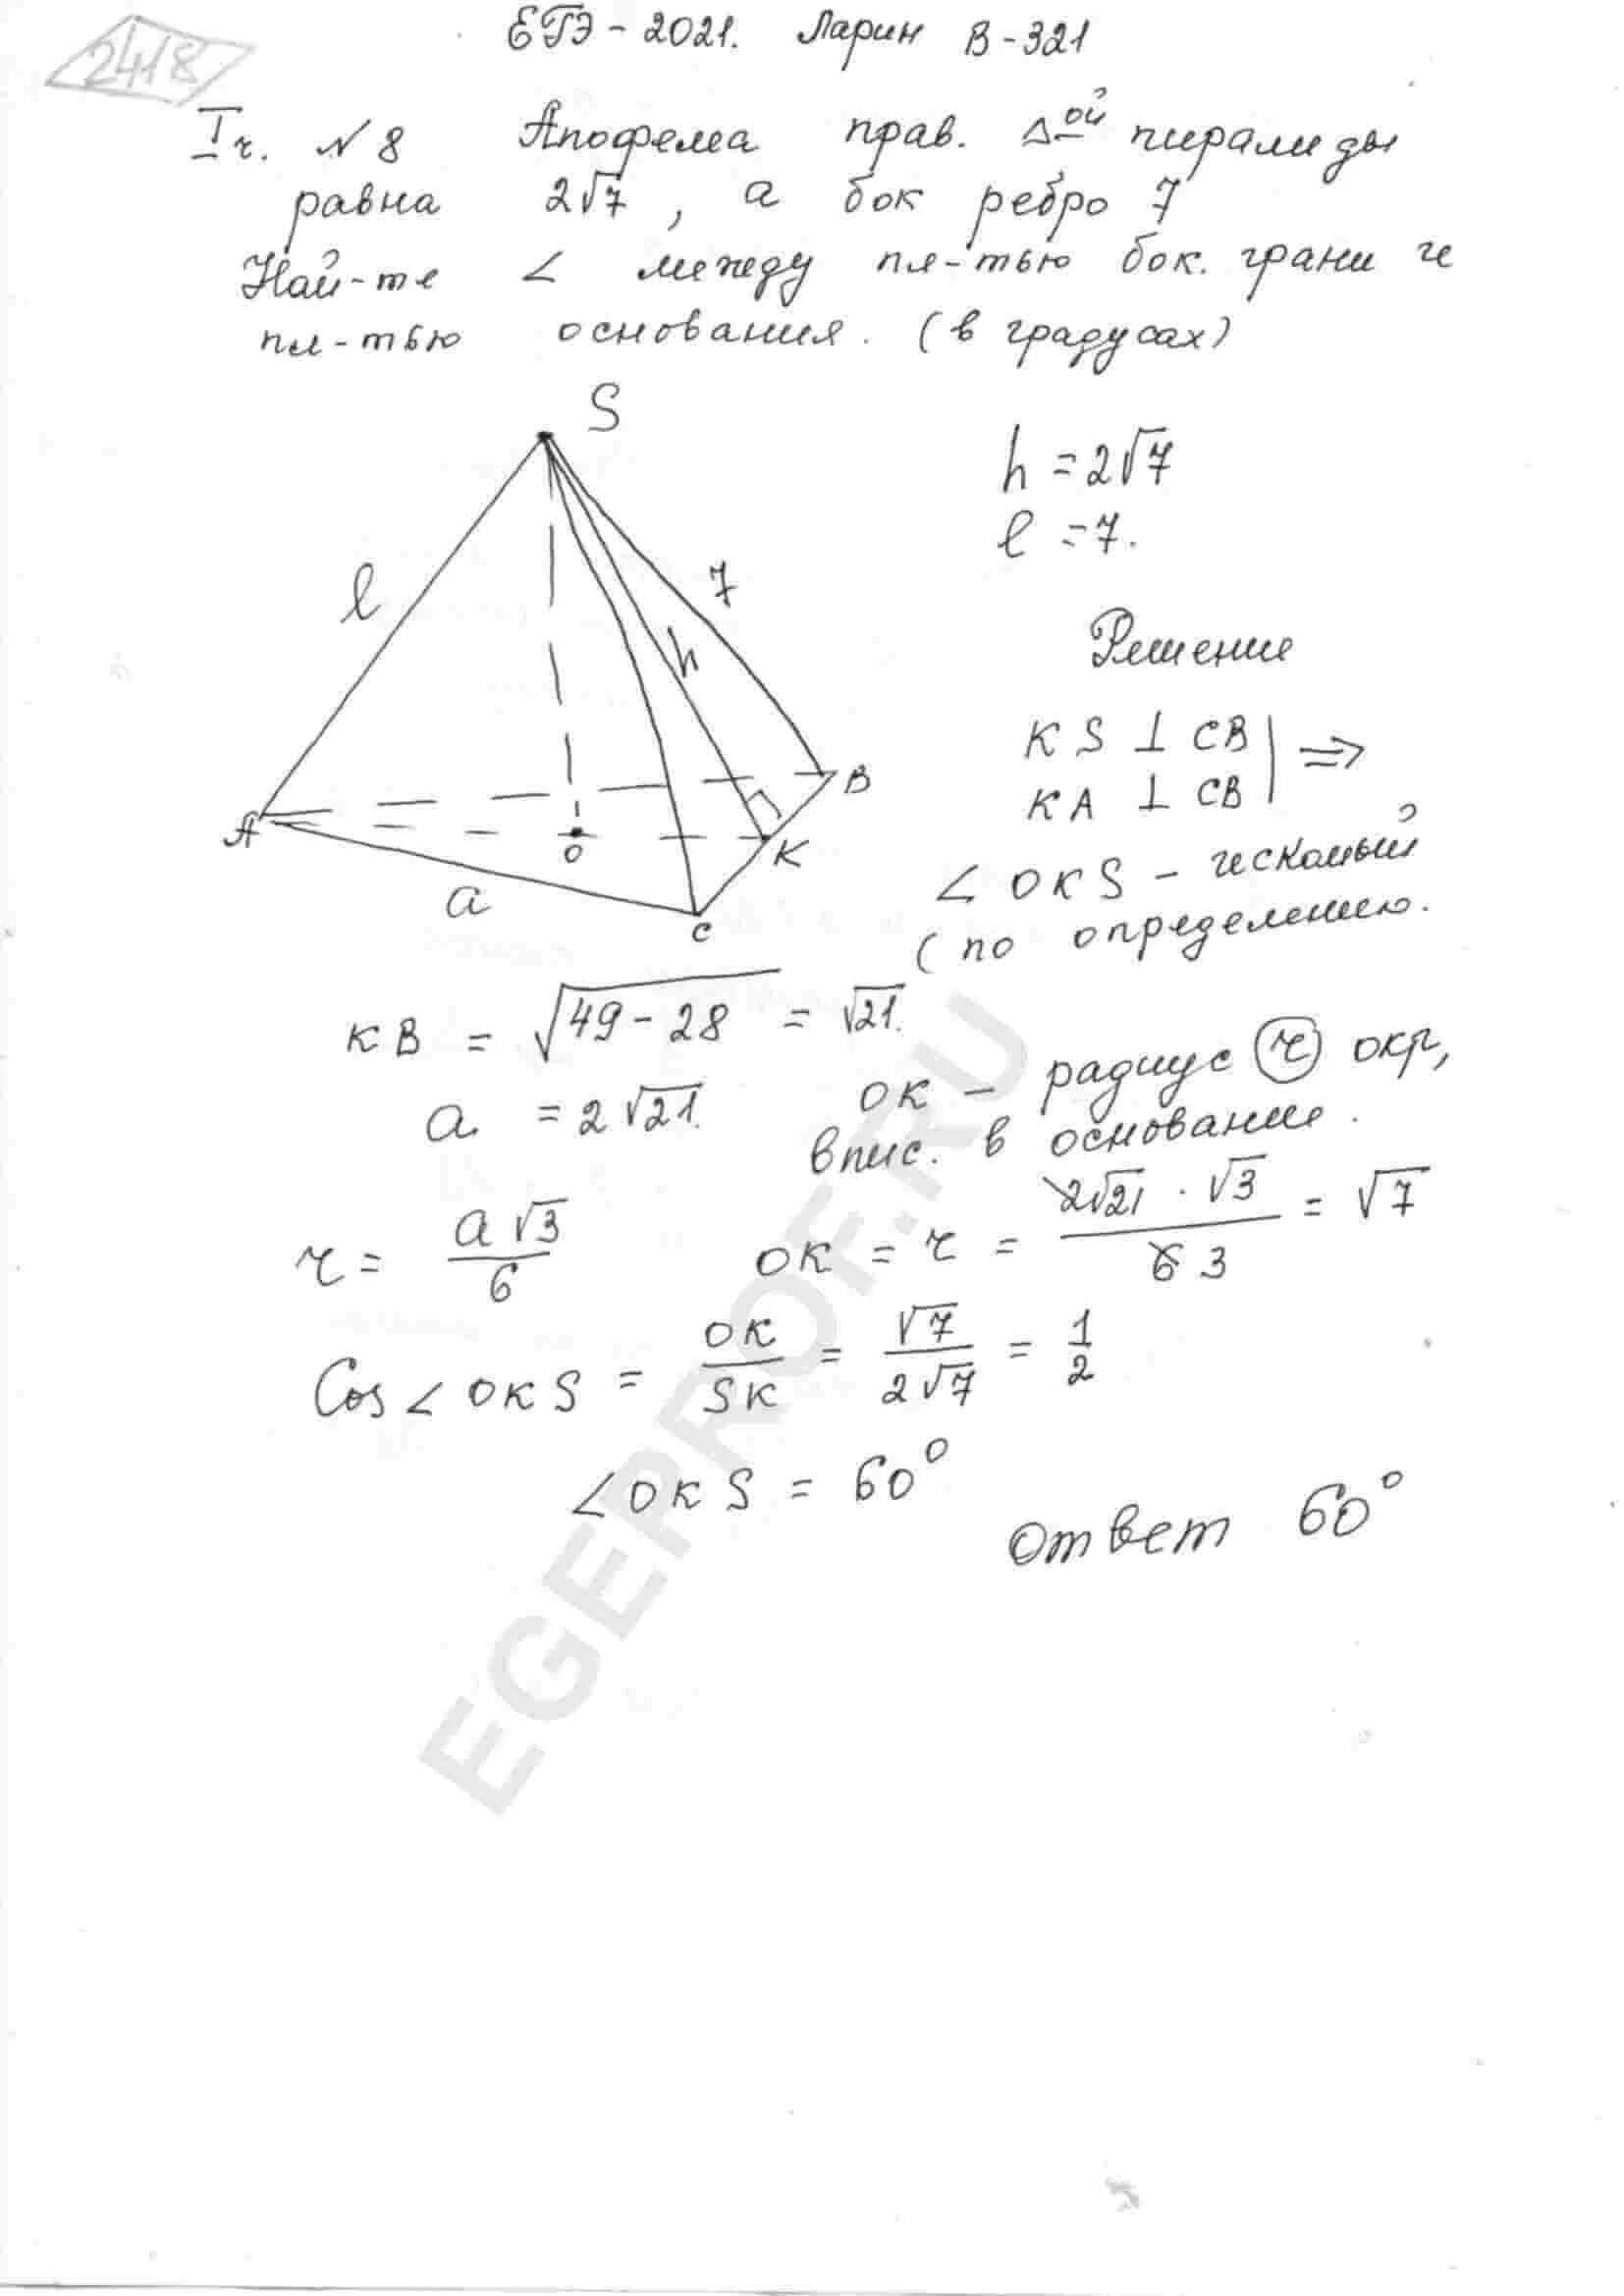 2418
ЕГЭ - 2021. Ларин В-321
I ч. №8 Апофема прав. Δ ой пирамиды
равна 2√7, а бок ребро 7
Най-те ∠ между пл-тью бок. грани и
пл-тью основания. (в градусах)
S
h = 2√7
l = 7.
l
7
h
Решение
KS ⊥ CB
KA ⊥ CB | ⇒
A
O
K
B
a
C
∠OKS - искомый
(по определению.
KB = √49 - 28 = √21.
a = 2√21.
OK - радиус r окр,
впис. в основание.
r = a√3/6
OK = r = 2√21 · √3 / 6 3 = √7
Cos∠OKS = OK/SK = √7/2√7 = 1/2
∠OKS = 60°
Ответ 60°
EGEPROF.RU